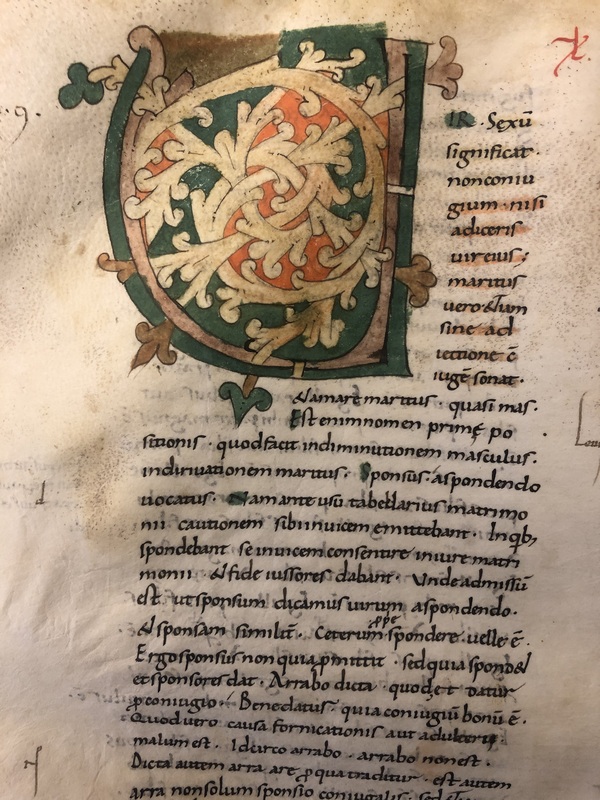 VIR · Sexū
significat ·
nonconiu
gium · nisi
adiceris
uireius ;
maritus
uero &iam
sine ad
iectione c̄
iugē sonat ·
&amare maritus · quasi mas ·
Est enimnomen primę po
sitionis · quodfacit indiminutionem masculus ·
indirivationem maritus · Sponsus · aspondendo
uocatus · Nam ante usū tabellarius matrimo
nii cautionem sibi inuicem emittebant · In qb;
spondebant se inuicem consentire iniure matri
monii · &fide iussores dabant · Unde admissū
est ut sponsum dicamus uirum aspondendo ·
&sponsam similit̄ · Ceterum ꝓpe spondere · uelle ē ·
Ergo sponsus non quia ꝓmittit · sed quia spond&
et sponsores dat · Arrabo dicta · quod et datur
ꝓ coniugio · Bene datus · quia coniugiū bonū ē ·
Quod utro causa fornicationis aut adulterii ·
malum est · Idcirco arrabo · arrabo non est ·
Dicta autem arra a re ꝓ qua traditur · est autem
arra non solum sponsio coniugalis · sed